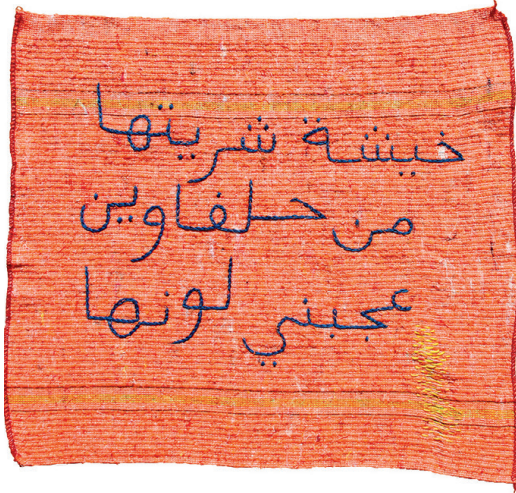 خيشة شريتها
من حلفاوين
عجبني لونها